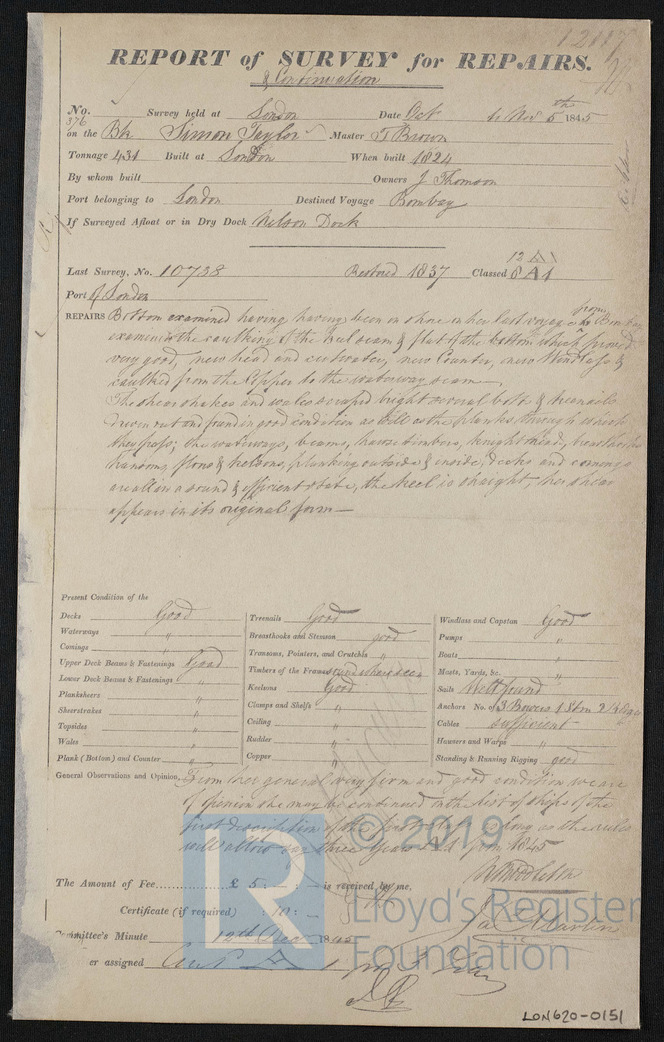 REPORT of SURVEY for REPAIRS.
& Continuation
No. 376 Survey held at London Date Oct to Nov 5th 1845
on the Bk Simon Taylor Master T Brown
Tonnage 431 Built at London When built 1824
By whom built Owners J Thomson
Port belonging to London Destined Voyage Bombay
If Surveyed Afloat or in Dry Dock Nelson Dock
Last Survey, No. 10738 Restored 1837 Classed 12 A1
Port of London
REPAIRS Bottom examined having having been on shore in her last voyage from Bombay
examined the caulking of the keel seam & flat of the bottom which proved
very good, new head and cutwater, new Counter, new Windlass &
caulked from the Copper to the waterway seam—
The shear strakes and wales scraped bright several bolts & treenails
driven out and found in good condition as well as the planks through which
they pass; the waterways, beams, hawse timbers, knightheads, breasthooks
transoms, floors & kelsons, planking outside & inside, decks and comings
are all in a sound & efficient state, the keel is straight, her shear
appears in its original form—
Present Condition of the
Decks Good
Waterways "
Comings "
Upper Deck Beams & Fastenings Good
Lower Deck Beams & Fastenings "
Planksheers "
Sheerstrakes "
Topsides "
Wales "
Plank (Bottom) and Counter "
Treenails Good
Breasthooks and Stemson good
Transoms, Pointers, and Crutches "
Timbers of the Frame sound where seen
Keelsons Good
Clamps and Shelfs "
Ceiling "
Rudder "
Copper "
Windlass and Capston Good
Pumps "
Boats "
Masts, Yards, &c. "
Sails Well found
Anchors No. of 3 Bowers 1 Strm 2 Kedges
Cables sufficient
Hawsers and Warps "
Standing & Running Rigging good
General Observations and Opinion, From her general very firm and good condition we are
of opinion she may be continued in the list of ships of the
first description of the first class as long as the rules
will allow say three years A1 from 1845
The Amount of Fee £ 5 : - : - is received by me,
Certificate (if required) : 10 : -
Committee's Minute 12th 1845
er assigned
© 2019
Lloyd's Register
Foundation
LON620-0151